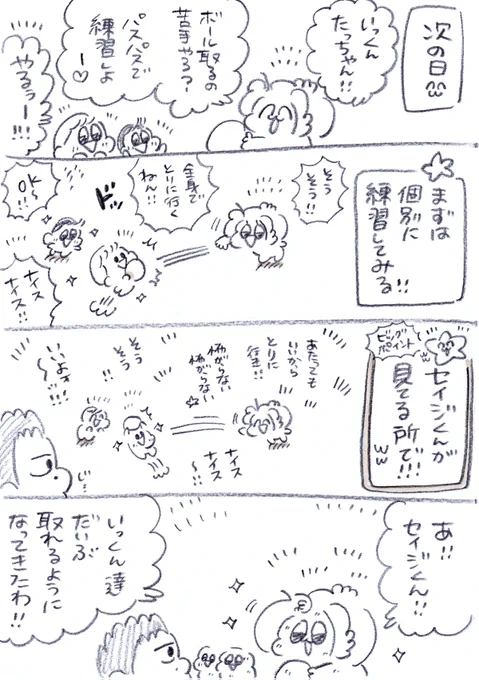 次の日
いっくん
たっちゃん!!
ボール取るの
苦手やろ?
パスパスで
練習しよ
ー♡
やるぅー!!!
まずは
個別に
練習してみる!!
そう
そう!!
全身で
とりに行く
ねん!!
ドッ
OK
〜!!
ナイス
ナイス!!
ビッグ
ポイント
セイジくんが
見てる所で!!!
ww
あたっても
いいから
とりに
行き!!
怖がらない
怖がらない
☆
ナイス
ナイス
〜!!
そう
そう
!!
いいよォ
〜!!!
じ…
あ!!
セイジくん!!
いっくん達
だいぶ
取れるように
なってきたわ!!